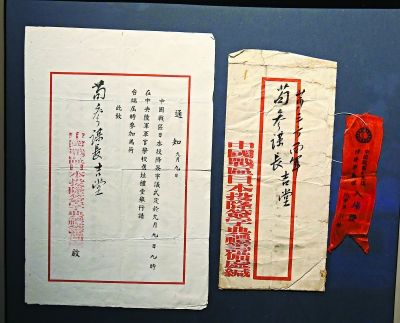 通知 九月
中國戰區日本投降簽字儀式定於九月九日九時
在中央陸軍軍官學校舊址禮堂舉行請
台端屆時參加為荷
此致
苟參謀長吉堂
中國戰區日本投降簽字典禮籌備處 啟
第三方面軍
苟參謀長吉堂
中國戰區日本投降簽字典禮籌備處緘